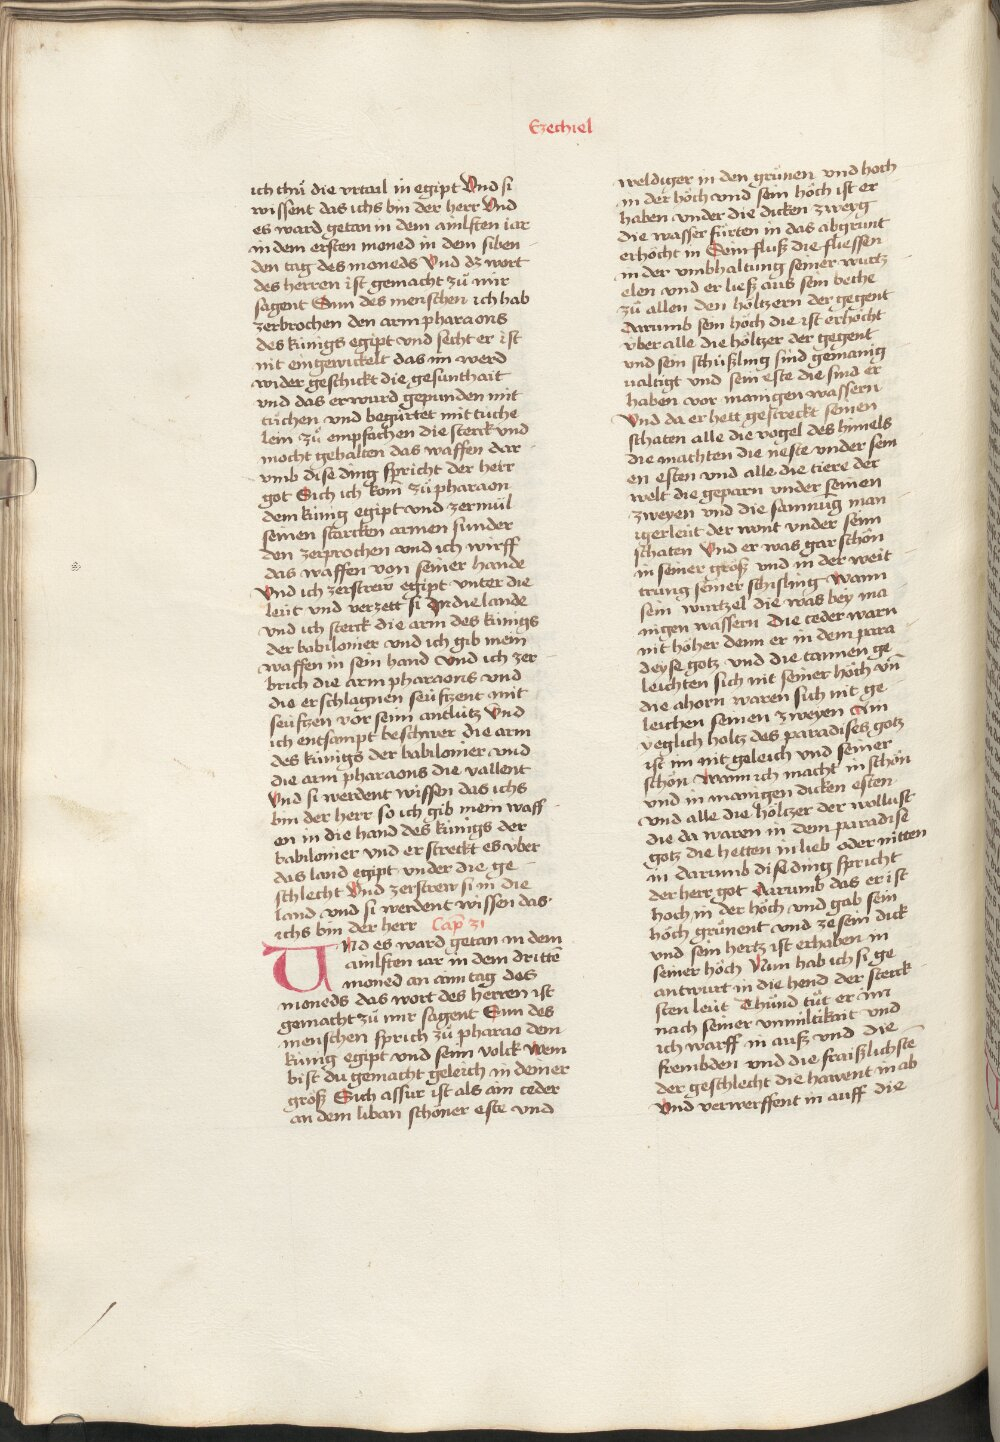 Ezechiel
ich thuͦ die vrtail in egipt Vnd si
wissent das ichs bin der herr Vnd
es ward getan in dem ainlften iar
in dem ersten moned in dem siben
den tag des moneds Vnd dz wort
des herren ist gemacht zuͦ mir
sagent Sun des menschen ich hab
zerbrochen den arm pharaons
des künigs egipt vnd secht er ist
nit eingewickelt das im werd
wider geschickt die gesunthait
vnd das er wurd gepunden mit
tüchen vnd begürtet mit tuche
lein zuͦ empfachen die sterck vnd
mocht gehalten das waffen dar
vmb dise ding spricht der herr
got Sich ich kom̄ zuͦ pharaon
dem künig egipt vnd zermül
seinen starcken armen sunder
den zerprochen vnd ich wirff
das waffen von seiner hande
Vnd ich zerstrew̄ egipt vnter die
leüt vnd verzett si In die lande
vnd ich sterck die arm des künigs
der babilonier vnd ich gib mein
waffen in sein hand vnd ich zer
brich die arm pharaons vnd
die erschlagnen seüfzent mit
seüfzen vor seim antlütz Vnd
ich entsampt beschwer die arm
des künigs der babilonier vnd
die arm pharaons die vallent
Vnd si werdent wissen das ichs
bin der herr so ich gib mein waff
en in die hand des künigs der
babilonier vnd er streckt es über
das land egipt vnder die ge
schlecht Vnd zerstrew si in die
land vnd si werdent wissen das
ichs bin der herr Cap̄ 31
Vnd es ward getan in dem
ainlften iar in dem dritte
moned an aim tag des
moneds das wort des herren ist
gemacht zuͦ mir sagent Sun des
menschen sprich zuͦ pharao dem
künig egipt vnd seim volck Wem
bist du gemacht geleich in deiner
größ Sich assur ist als ain ceder
an dem liban schöner este vnd
weldiger in den grünen vnd hoch
in der höch vnd sein höch ist er
haben vnder die dicken zweyg
die wasser fürten in das abgrunt
erhöcht in Sein fluß die fliessen
in der vmbhaltung seiner wurtz
elen vnd er ließ aus sein beche
zuͦ allen den höltzern der gegent
darumb sein höch die ist erhöcht
über alle die höltzer der gegent
vnd sein schüßling sind gemanig
ualtigt vnd sein este die sind er
haben vor manigen wassern
Vnd da er hett gestreckt seinen
schaten alle die vogel des himels
die machten die neste vnder sein
en esten vnd alle die tiere der
welt die geparn vnder seinen
zweyen vnd die samnūg man
igerleüt der wont vnder seim
schaten Vnd er was gar schön
in seiner größ vnd in der weit
trung seiner schisling Wann
sein wurtzel die was bey ma
nigen wassern Die ceder warn
nit höher denn er in dem para
deyse gotz vnd die tannen ge
leichten sich nit seiner höch vn̄
die ahorn waren sich nit ge
leichen seinen zweyen Ain
yeglich holtz des paradises gotz
ist im nit geleich vnd seiner
schön Wann ich macht in schön
vnd in manigen dicken esten
vnd alle die höltzer der wollust
die da waren in dem paradise
gotz die hetten in lieb oder nitten
in darumb dise ding spricht
der herr got Darumb das er ist
hoch in der höch vnd gab sein
höch grünent vnd ze sein dick
vnd sein hertz ist erhaben in
seiner höch Nun hab ich si ge
antwurt in die hend der sterck
sten leüt Thünd tüt er im
nach seiner vnmiltikait vnd
ich warff in auß vnd die
frembden vnd die fraißlichste
der geschlecht die hawent in ab
Vnd verwerffent in auff die